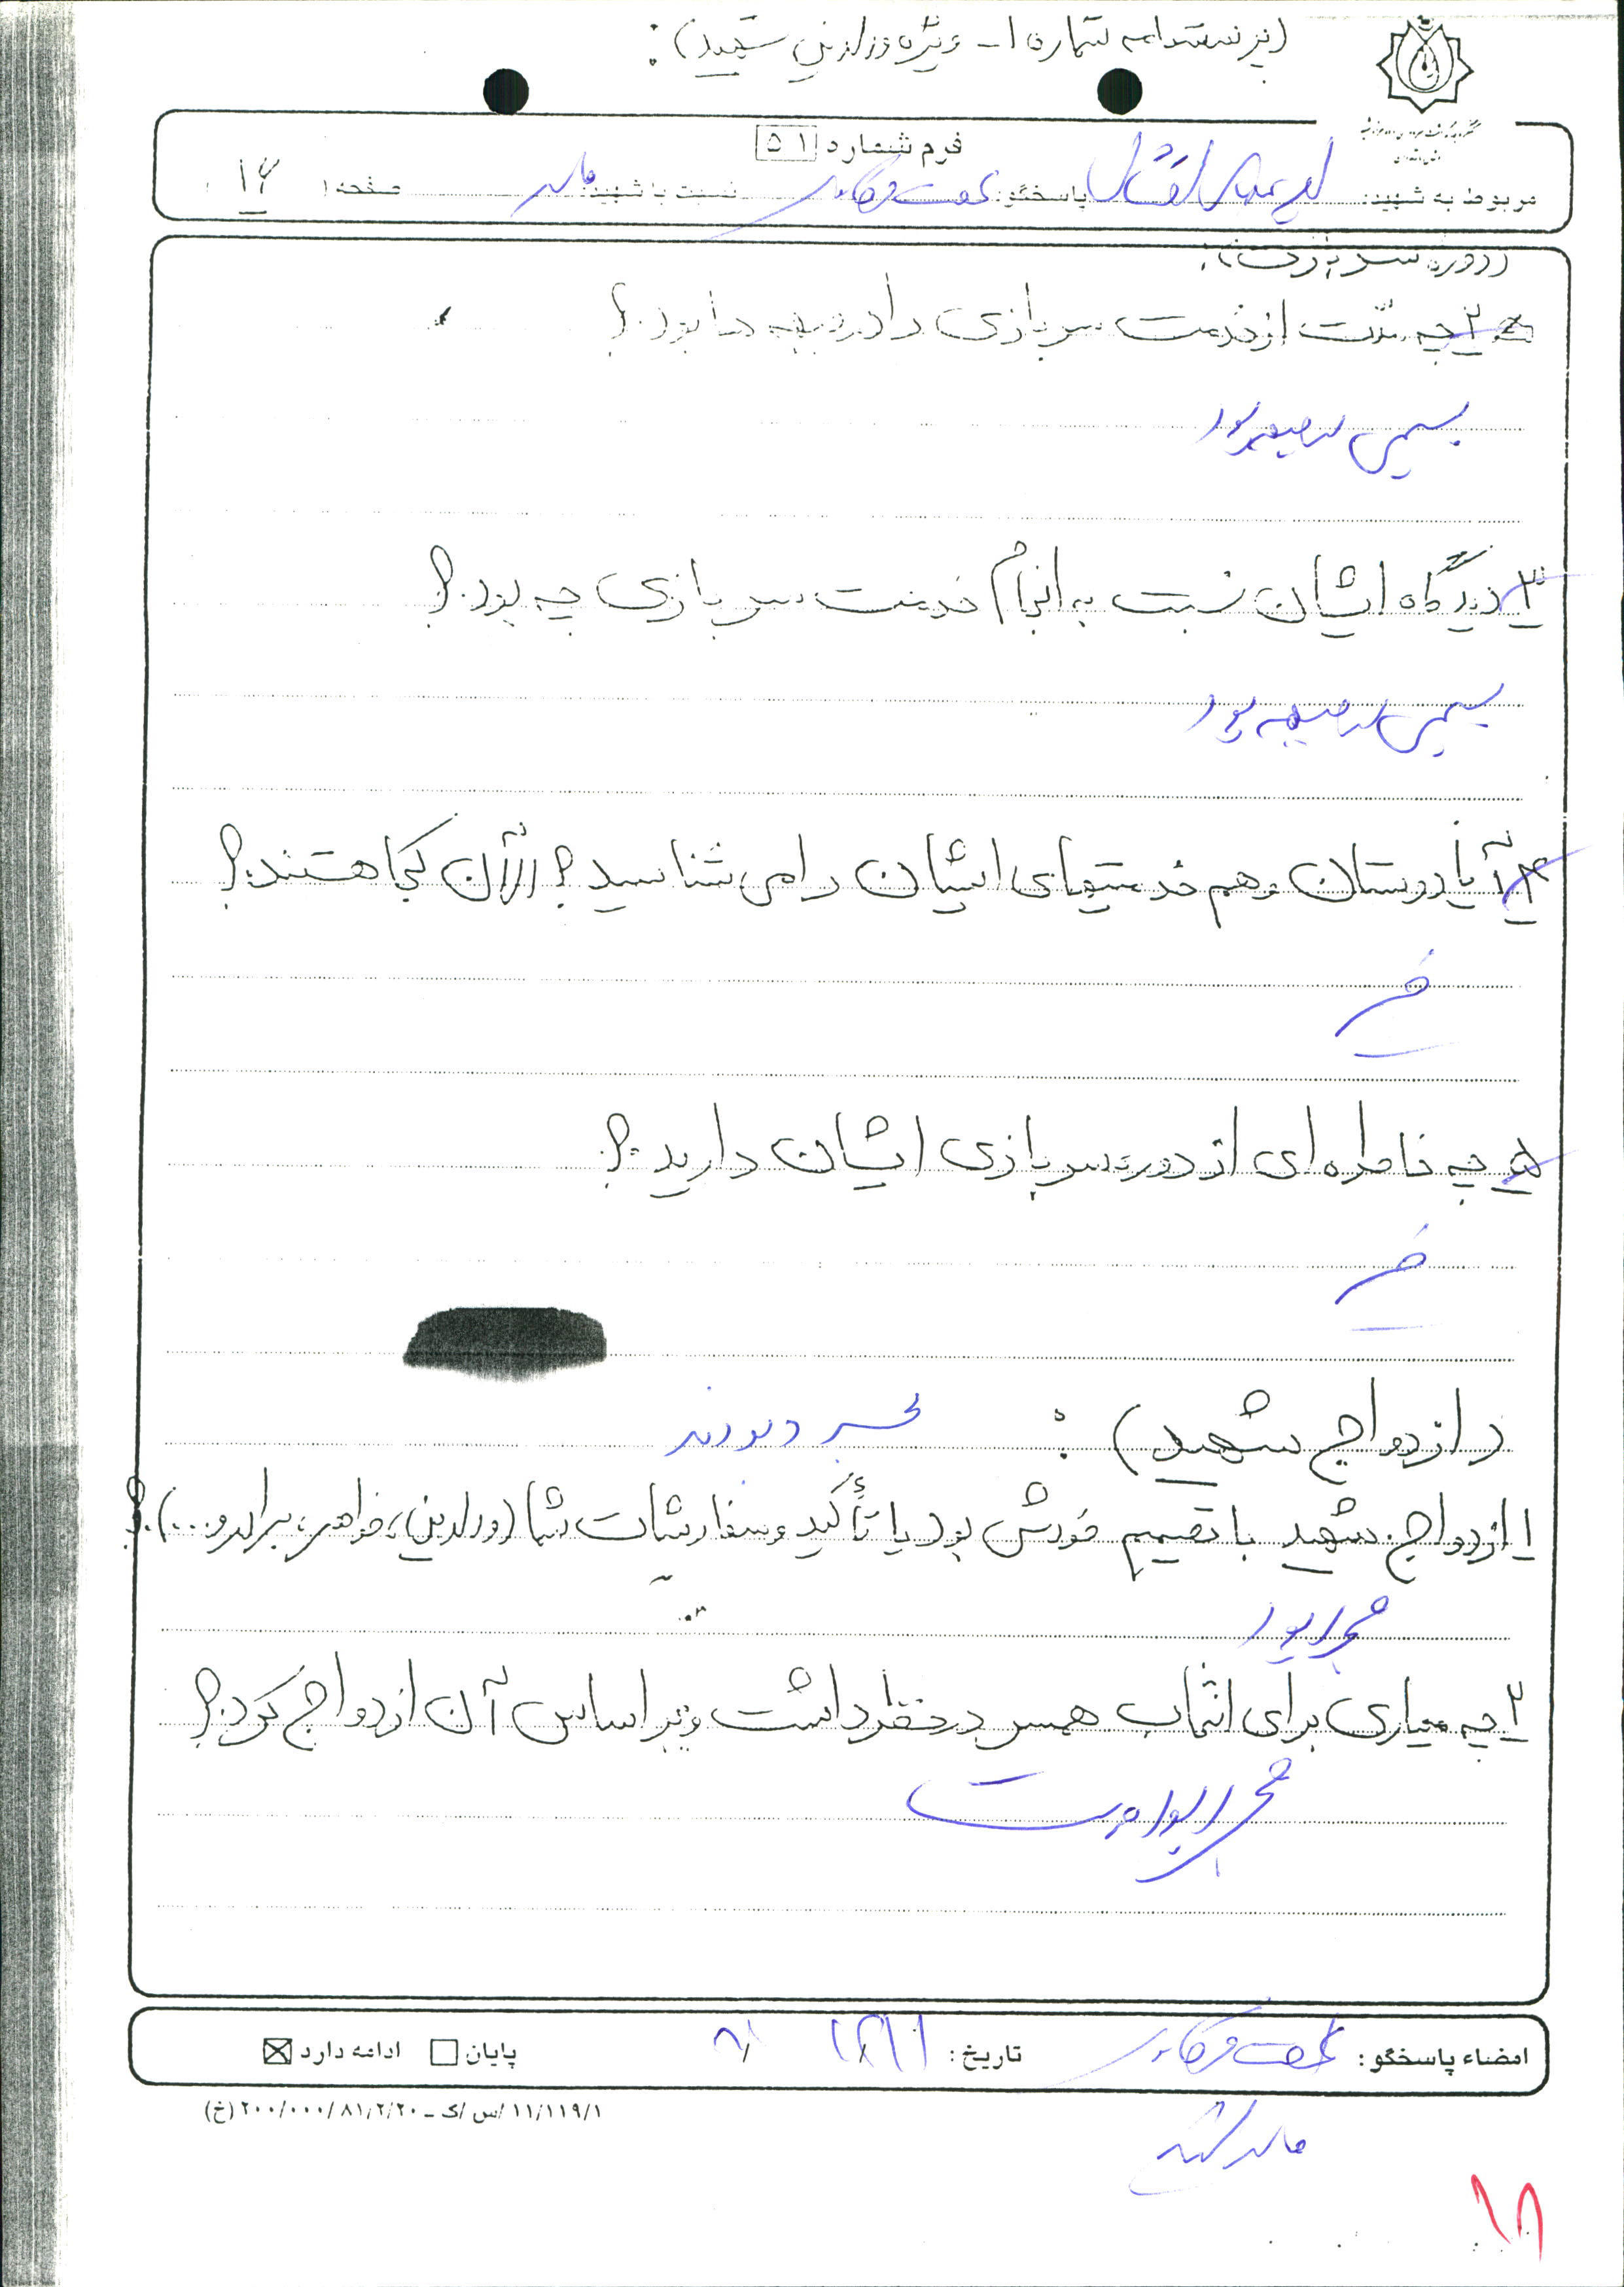 (پرسشنامه شماره ۱- ویژه والدین شهید):
فرم شماره ۵۱
مربوط به شهید: پاسخگو: نسبت با شهید: مادر صفحه ۱۴
(دوره سربازی):
۲ چه مدت از خدمت سربازی را در جبهه ها بود؟
بسیجی در جبهه بود
۳ دیدگاه ایشان نسبت به انجام خدمت سربازی چه بود؟
بسیجی در جبهه بود
۴ آیا دوستان و هم خدمتیهای ایشان را می شناسید؟ الآن کجا هستند؟
خیر
۵ چه خاطره ای از دوره سربازی ایشان دارید؟
خیر
(ازدواج شهید):
۱ ازدواج شهید با تصمیم خودش بود یا تأکید و سفارشات شما (والدین، خواهر، برادر و...)؟
مجرد بود
۲ چه معیاری برای انتخاب همسر در نظر داشت و بر اساس آن ازدواج کرد؟
مجرد بوده است
امضاء پاسخگو: تاریخ: پایان ادامه دارد
۱۱/۱۱۹/۱ /س /ک – ۲۰۰/۰۰۰/۸۱/۲/۲۰ (خ)
مادر شهید
۱۸